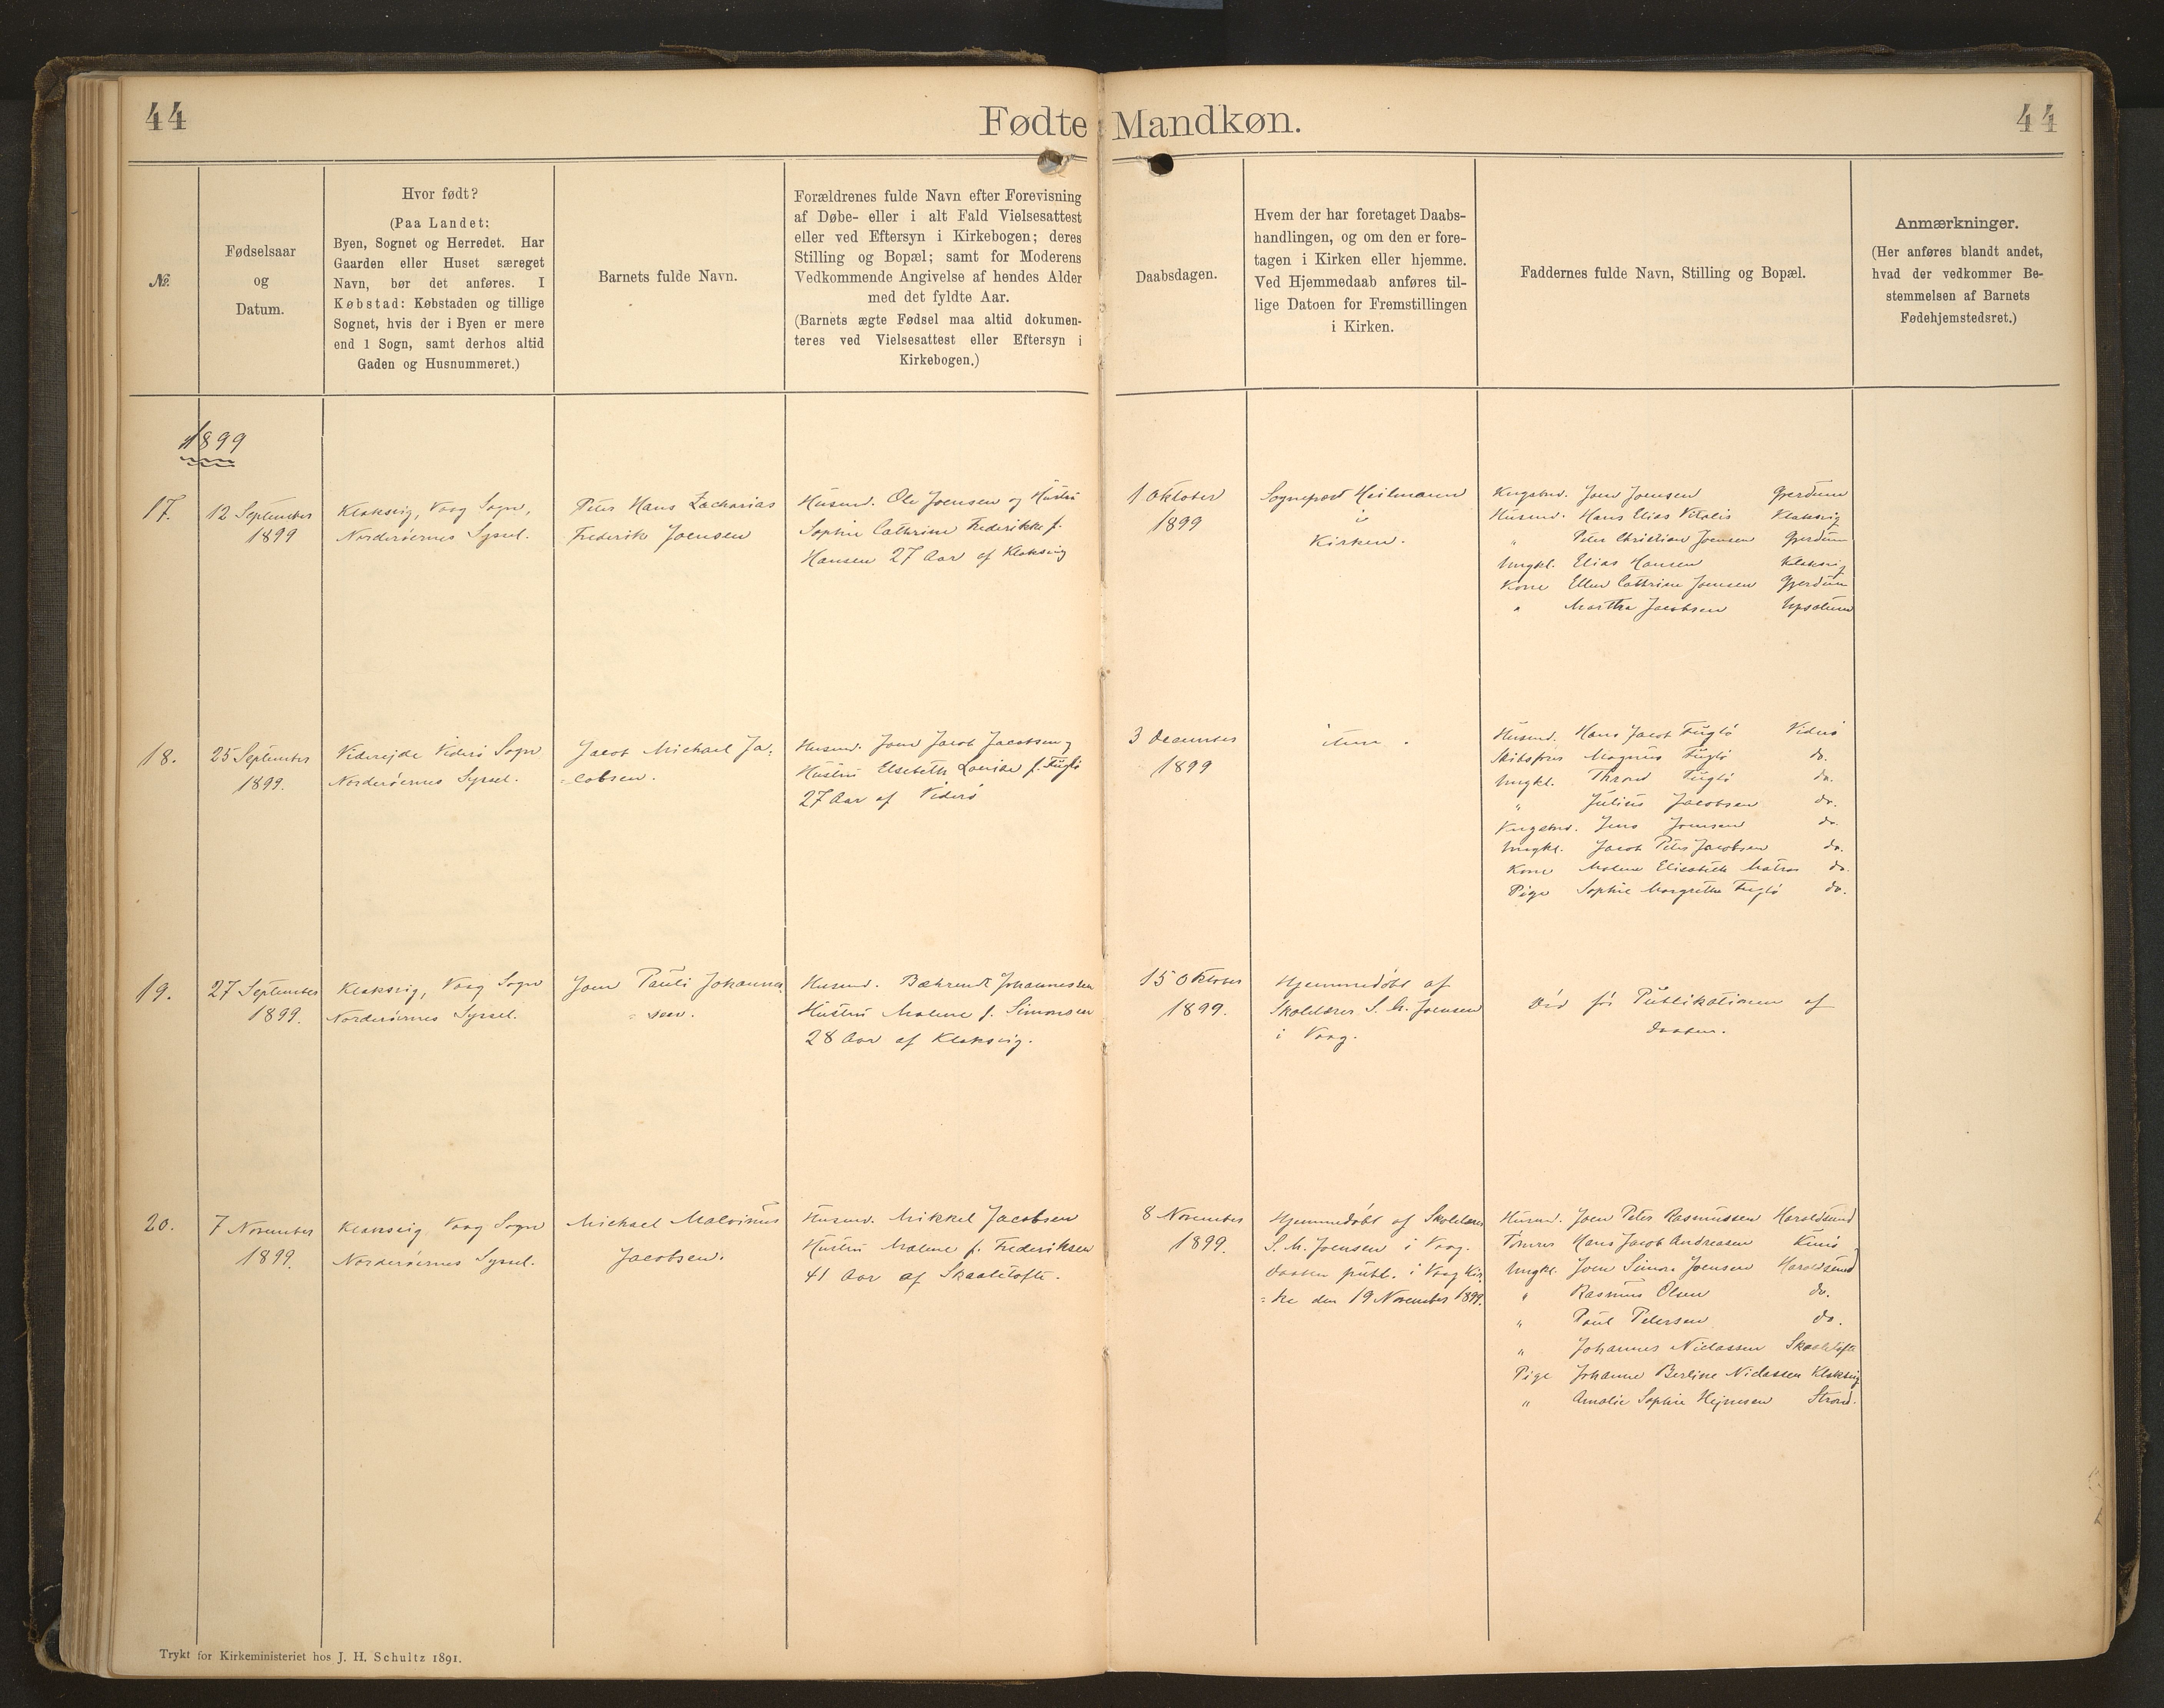 44
Fødte Mandkøn.
44
№.
Fødselsaar
og
Datum.
Hvor født?
(Paa Landet:
Byen, Sognet og Herredet. Har
Gaarden eller Huset særeget
Navn, bør det anføres. I
Købstad: Købstaden og tillige
Sognet, hvis der i Byen er mere
end 1 Sogn, samt derhos altid
Gaden og Husnummeret.)
Barnets fulde Navn.
Forældrenes fulde Navn efter Forevisning
af Døbe- eller i alt Fald Vielsesattest
eller ved Eftersyn i Kirkebogen; deres
Stilling og Bopæl; samt for Moderens
Vedkommende Angivelse af hendes Alder
med det fyldte Aar.
(Barnets ægte Fødsel maa altid dokumen-
teres ved Vielsesattest eller Eftersyn i
Kirkebogen.)
Daabsdagen.
Hvem der har foretaget Daabs-
handlingen, og om den er fore-
tagen i Kirken eller hjemme.
Ved Hjemmedaab anføres til-
lige Datoen for Fremstillingen
i Kirken.
Faddernes fulde Navn, Stilling og Bopæl.
Anmærkninger.
(Her anføres blandt andet,
hvad der vedkommer Be-
stemmelsen af Barnets
Fødehjemstedsret.)
1899
17.
12 September
1899
Klaksvig, Vaag Sogn,
Norderøernes Syssel.
Peter Hans Zacharias
Frederik Joensen
Husmd. Ole Joensen og Hustru
Sophie Cathrine Frederikke f.
Hansen 27 Aar af Klaksvig
1 Oktober
1899
Sognepræst Heilmann
i
Kirken.
Kngsbmd. Joen Joensen Gjerdum
Husmd. Hans Elias Vitalis Klaksvig
" Peter Christian Joensen Gjerdum
Ungkl. Elias Hansen Klaksvig
Kone Ellen Cathrine Joensen Gjerdum
" Martha Jacobsen
18.
25 September
1899.
Viderejde Viderø Sogn
Norderøernes Syssel.
Jacob Michael Ja-
=cobsen.
Husmd. Joen Jacob Jacobsen og
Hustru Elsebeth Lovise f. Fuglø
27 Aar af Viderø
3 December
1899
item.
Husmd. Hans Jacob Fuglø Viderø
Skibsfører Magnus Fuglø do.
Ungkl. Thrond Fuglø do.
" Julius Jacobsen do.
Kngsbmd. Jens Joensen do.
Ungkl. Jacob Peter Jacobsen do.
Kone Malene Elisabeth Matras do.
Pige Sophie Margrethe Fuglø do.
19.
27 September
1899.
Klaksvig, Vaag Sogn
Norderøernes Syssel.
Joen Pauli Johannes
=sen.
Husmd. Bæhrendt Johannessen
Hustru Malene f. Simonsen
28 Aar af Klaksvig.
15 Oktober
1899.
Hjemmedøbt af
Skolelærer S. M. Joensen
i Vaag.
Død før Publikationen af
Daaben.
20.
7 November
1899.
Klaksvig Vaag Sogn
Norderøernes Syssel.
Michael Malvinus
Jacobsen.
Husmd. Mikkel Jacobsen
Hustru Malene f. Frederiksen
41 Aar af Skaaletofte.
8 November
1899.
Hjemmedøbt af Skolelærer
S. M. Joensen i Vaag.
Daaben publ. i Vaag Kir
=ke den 19 November 1899.
Husmd. Joen Peter Rasmussen Haraldsund
Tømrer Hans Jacob Andreasen Kunø
Ungkl. Joen Simon Joensen Haraldsund
" Rasmus Olsen do.
" Poul Petersen do.
" Johannes Niclassen Skaaletofte
Pige Johanne Berline Niclassen Klaksvig
" Amalie Sophie Hejnesen Strond.
Trykt for Kirkeministeriet hos J. H. Schultz 1891.